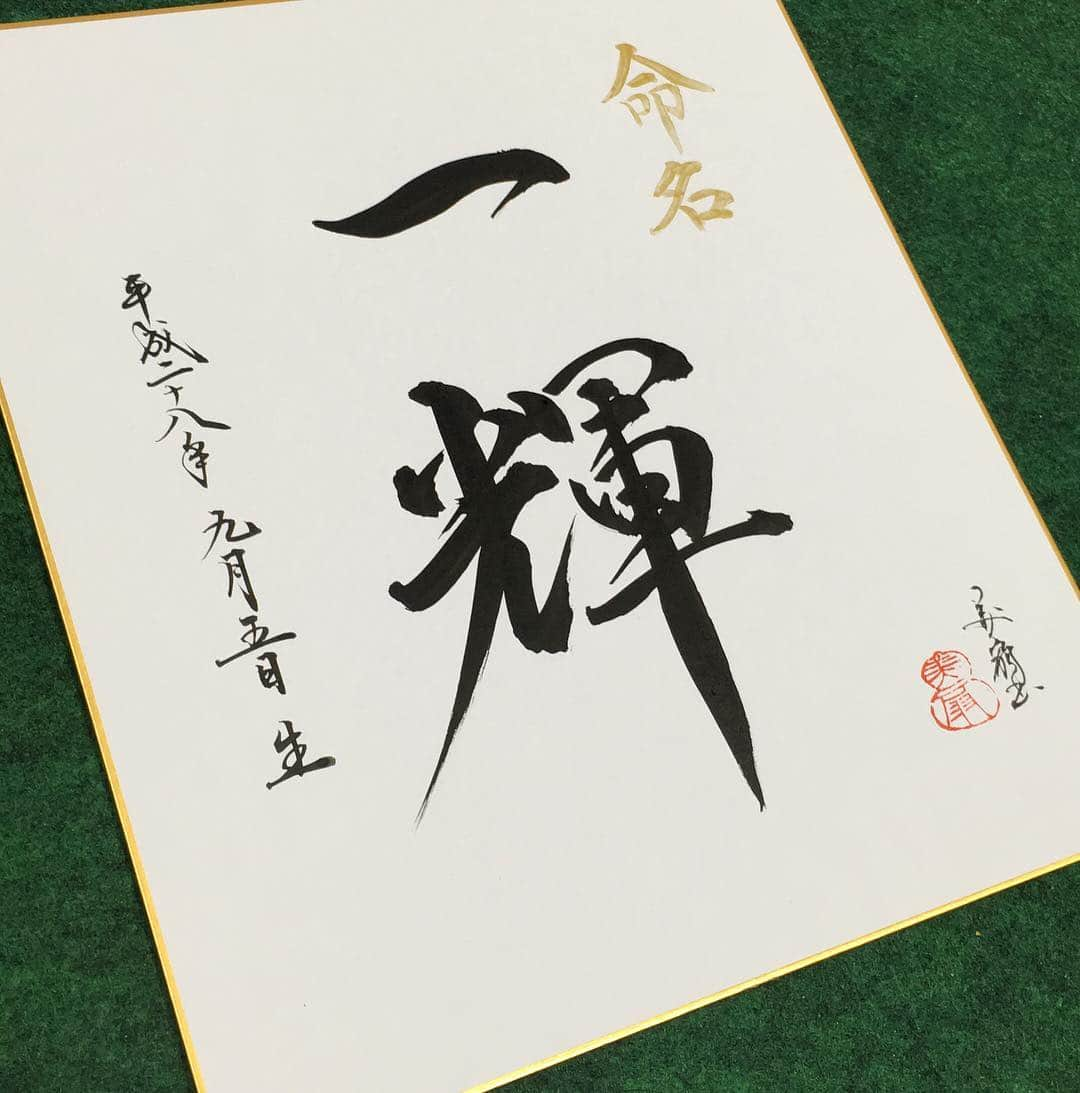 命名
一輝
平成二十八年 九月五日 生